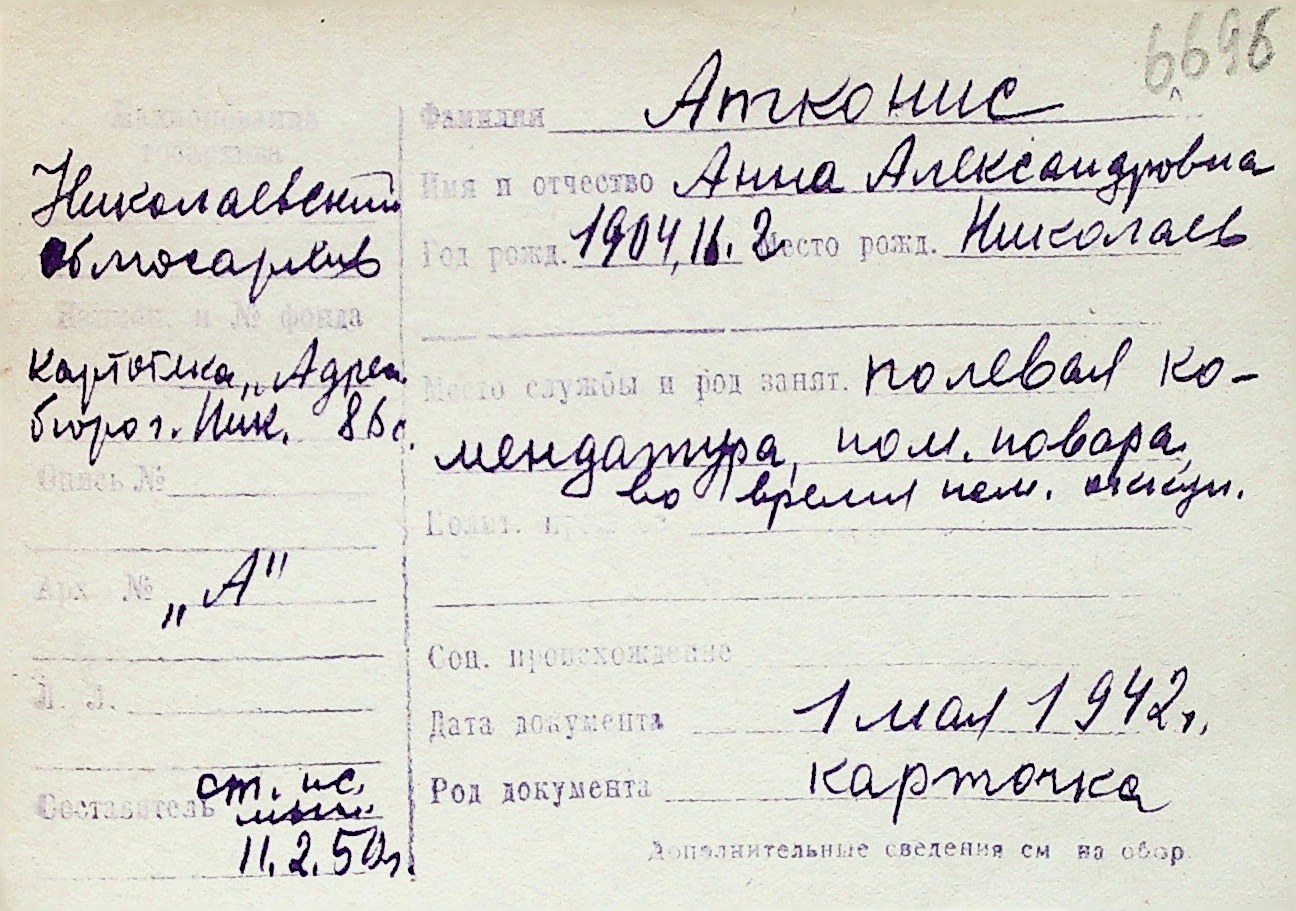 6696
Наименование
госархива
Николаевский
облгосархив
Наимен. и № фонда
картотека „Адрес.
бюро г. Ник. 86 с.
Опись №
Арх. № „А"
Л. Л.
Составитель ст. ис.
11.2.50г.
Фамилия Атконис
Имя и отчество Анна Александровна
Год рожд. 1904, II. 2. Место рожд. Николаев
Место службы и род занят. полевая ко-
мендатура, пом. повара,
во время нем. оккуп.
Соц. происхождение
Дата документа 1 мая 1942 г.
Род документа карточка
Дополнительные сведения см на обор.